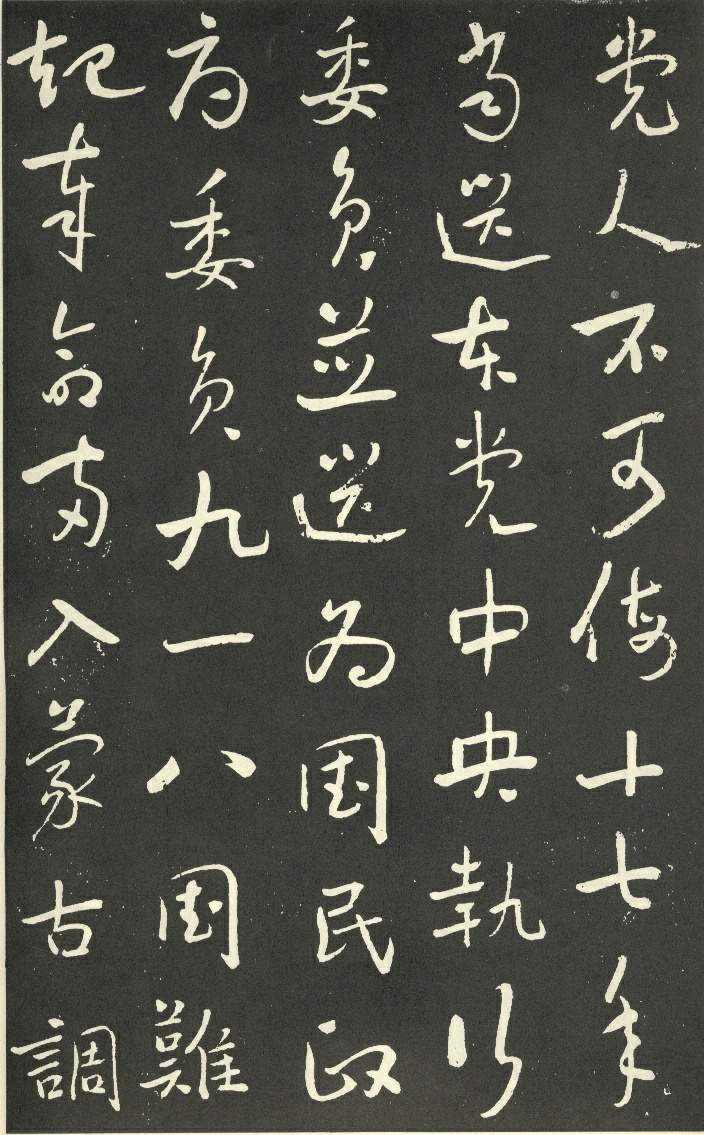 党人不可侮十七年
當選本党中央執行
委員並選為國民政
府委員九一八國難
起奉命兩入蒙古調